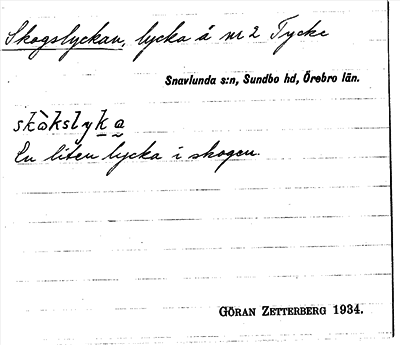 Skogslyckan, lycka å nr 2 Tycke
Snavlunda s:n, Sundbo hd, Örebro län.
skòkslyka
En liten lycka i skogen.
GÖRAN ZETTERBERG 1934.